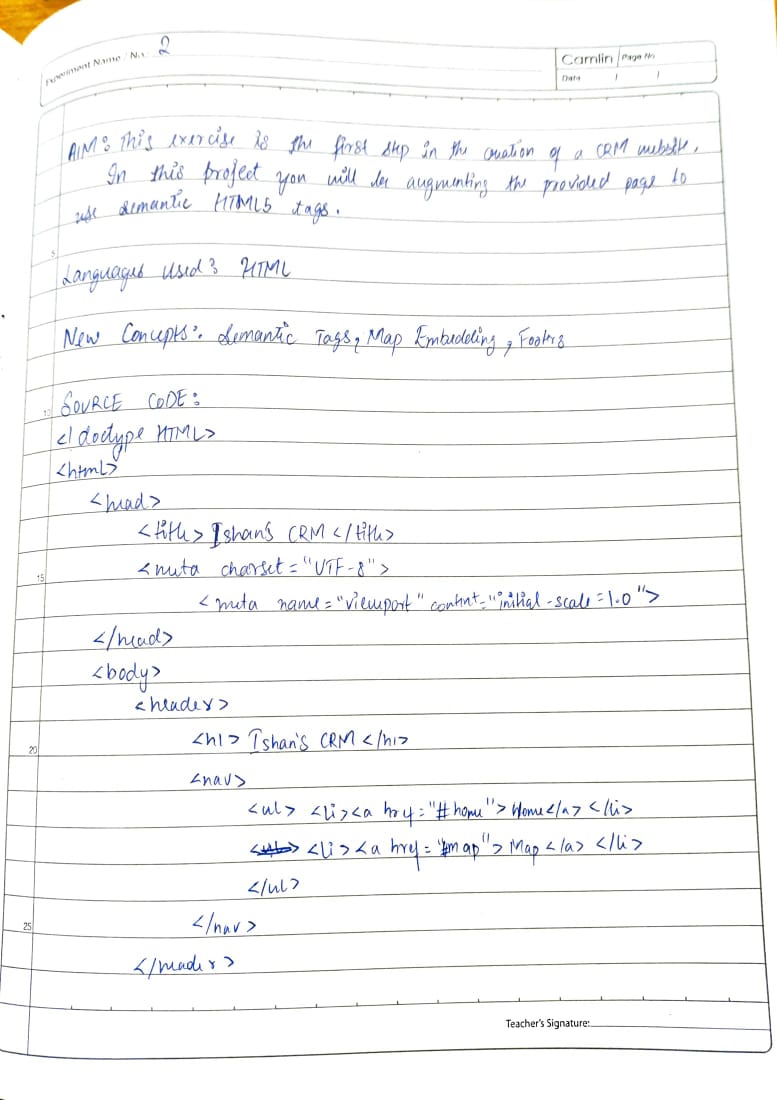 Experiment Name / No.: 2
Camlin Page No
Date / /
AIM: This exercise is the first step in the creation of a CRM website.
In this project you will be augmenting the provided page to
use semantic HTML5 tags.
5
Languages Used: HTML
New Concepts: Semantic Tags, Map Embedding, Footers
10 SOURCE CODE:
<! doctype HTML>
<html>
<head>
<title> Ishan's CRM </title>
15 <meta charset = "UTF-8">
<meta name = "viewport" content = "initial-scale = 1.0">
</head>
<body>
<header>
20 <h1> Ishan's CRM </h1>
<nav>
<ul> <li><a href = "#home"> Home</a> </li>
<li> <a href = "#map"> Map </a> </li>
</ul>
25 </nav>
</header>
Teacher's Signature: